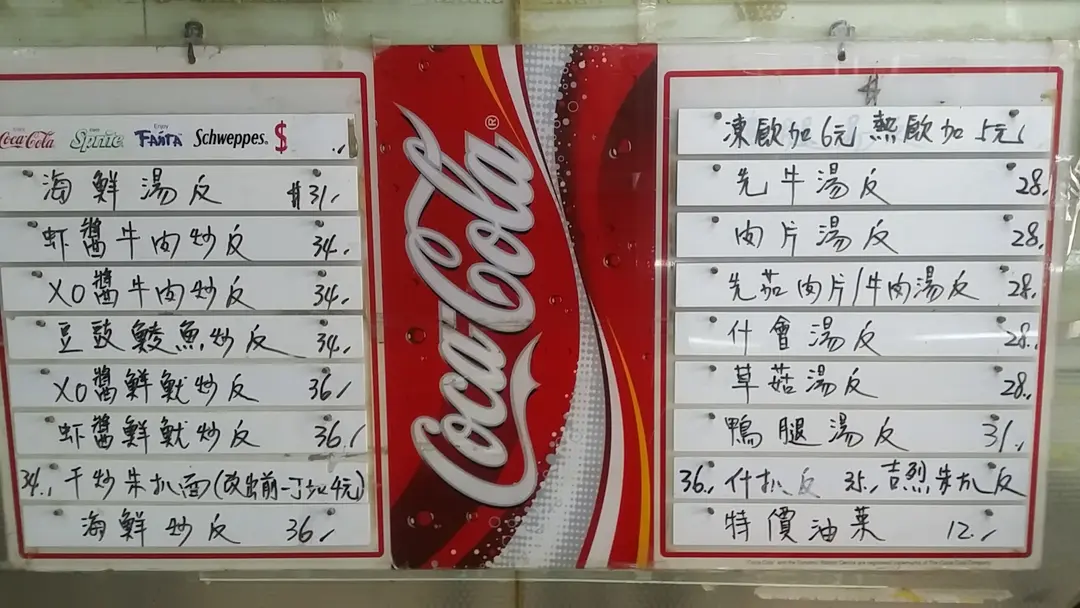 Coca-Cola Sprite Enjoy FANTA Schweppes. $
海鮮湯反 $31.
虾醬牛肉炒反 34.
XO醬牛肉炒反 34.
豆豉鯪魚炒反 34.
XO醬鮮魷炒反 36.
虾醬鮮魷炒反 36.
34. 干炒朱扒面(改出前一丁加4元)
海鮮炒反 36.
Coca-Cola®
$
凍飲加6元 熱飲加5元
先牛湯反 28.
肉片湯反 28.
先茄肉片/牛肉湯反 28.
什會湯反 28.
草菇湯反 28.
鴨腿湯反 31.
36. 什扒反 35. 吉烈朱扒反
特價油菜 12.